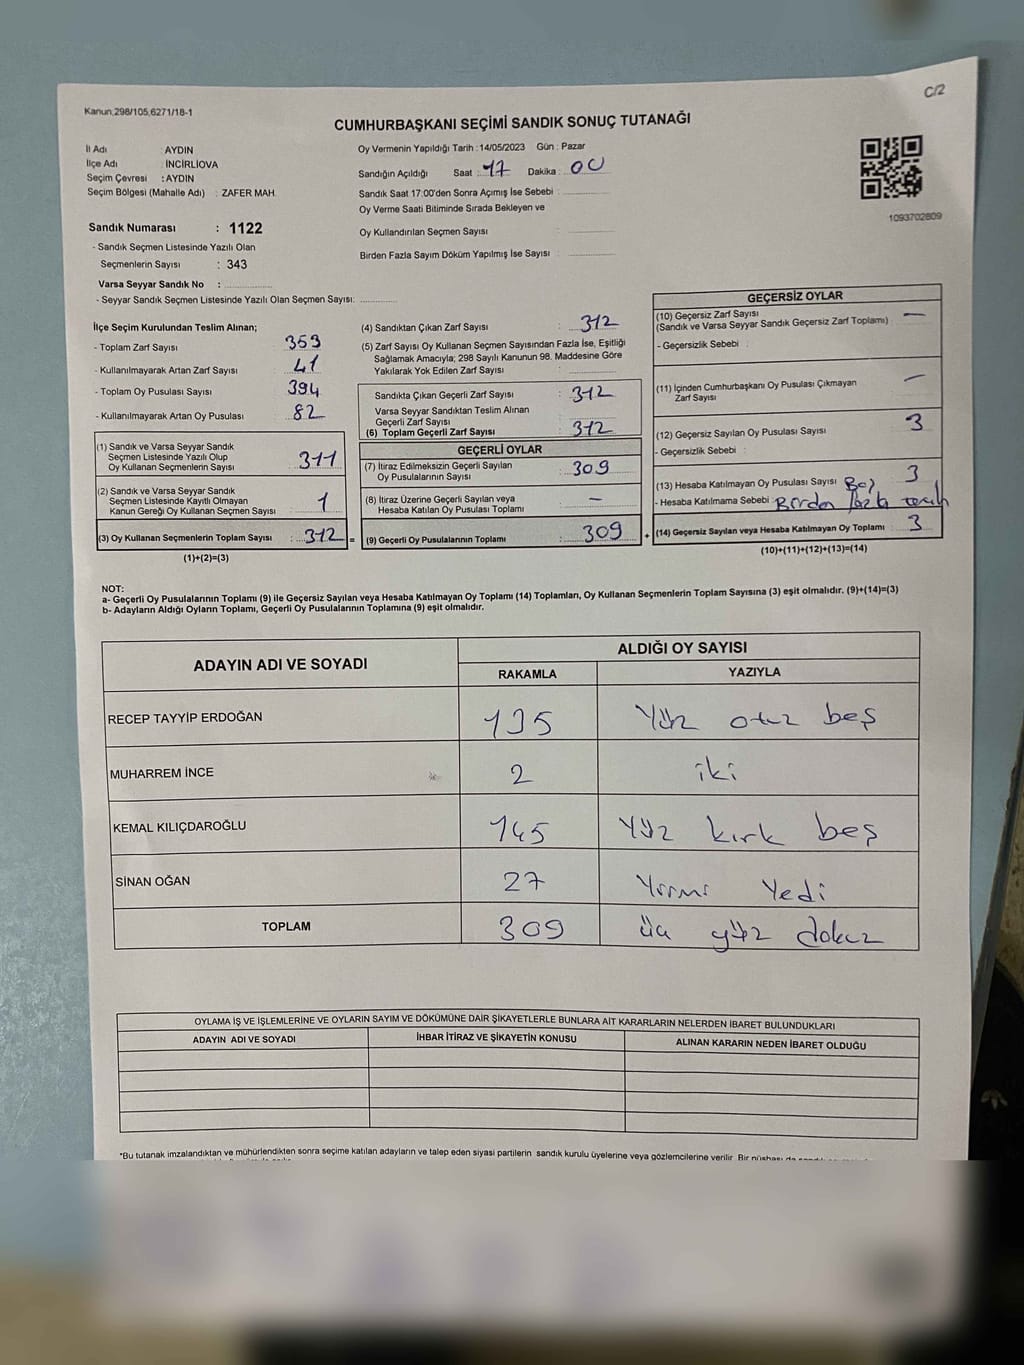 C/2
Kanun,298/105,6271/18-1
CUMHURBAŞKANI SEÇİMİ SANDIK SONUÇ TUTANAĞI
İl Adı : AYDIN
İlçe Adı : İNCİRLİOVA
Seçim Çevresi : AYDIN
Seçim Bölgesi (Mahalle Adı) : ZAFER MAH.
Oy Vermenin Yapıldığı Tarih : 14/05/2023 Gün : Pazar
Sandığın Açıldığı Saat : 17 Dakika : 00
Sandık Saat 17:00'den Sonra Açımış İse Sebebi :
Oy Verme Saati Bitiminde Sırada Bekleyen ve
Oy Kullandırılan Seçmen Sayısı :
Birden Fazla Sayım Döküm Yapılmış İse Sayısı :
1093702809
Sandık Numarası : 1122
- Sandık Seçmen Listesinde Yazılı Olan
Seçmenlerin Sayısı : 343
Varsa Seyyar Sandık No :
- Seyyar Sandık Seçmen Listesinde Yazılı Olan Seçmen Sayısı:
İlçe Seçim Kurulundan Teslim Alınan;
- Toplam Zarf Sayısı : 353
- Kullanılmayarak Artan Zarf Sayısı : 41
- Toplam Oy Pusulası Sayısı : 394
- Kullanılmayarak Artan Oy Pusulası : 82
(1) Sandık ve Varsa Seyyar Sandık
Seçmen Listesinde Yazılı Olup
Oy Kullanan Seçmenlerin Sayısı : 311
(2) Sandık ve Varsa Seyyar Sandık
Seçmen Listesinde Kayıtlı Olmayan
Kanun Gereği Oy Kullanan Seçmen Sayısı : 1
(3) Oy Kullanan Seçmenlerin Toplam Sayısı : 312 =
(1)+(2)=(3)
(4) Sandıktan Çıkan Zarf Sayısı : 312
(5) Zarf Sayısı Oy Kullanan Seçmen Sayısından Fazla İse, Eşitliği
Sağlamak Amacıyla; 298 Sayılı Kanunun 98. Maddesine Göre
Yakılarak Yok Edilen Zarf Sayısı :
Sandıkta Çıkan Geçerli Zarf Sayısı : 312
Varsa Seyyar Sandıktan Teslim Alınan
Geçerli Zarf Sayısı :
(6) Toplam Geçerli Zarf Sayısı 312
GEÇERLİ OYLAR
(7) İtiraz Edilmeksizin Geçerli Sayılan
Oy Pusulalarının Sayısı : 309
(8) İtiraz Üzerine Geçerli Sayılan veya
Hesaba Katılan Oy Pusulası Toplamı : –
(9) Geçerli Oy Pusulalarının Toplamı : 309 +
GEÇERSİZ OYLAR
(10) Geçersiz Zarf Sayısı : –
(Sandık ve Varsa Seyyar Sandık Geçersiz Zarf Toplamı)
- Geçersizlik Sebebi :
(11) İçinden Cumhurbaşkanı Oy Pusulası Çıkmayan
Zarf Sayısı : –
(12) Geçersiz Sayılan Oy Pusulası Sayısı : 3
- Geçersizlik Sebebi :
(13) Hesaba Katılmayan Oy Pusulası Sayısı 3
- Hesaba Katılmama Sebebi : Birden fazla
(14) Geçersiz Sayılan veya Hesaba Katılmayan Oy Toplamı : 3
(10)+(11)+(12)+(13)=(14)
NOT:
a- Geçerli Oy Pusulalarının Toplamı (9) ile Geçersiz Sayılan veya Hesaba Katılmayan Oy Toplamı (14) Toplamları, Oy Kullanan Seçmenlerin Toplam Sayısına (3) eşit olmalıdır. (9)+(14)=(3)
b- Adayların Aldığı Oyların Toplamı, Geçerli Oy Pusulalarının Toplamına (9) eşit olmalıdır.
ADAYIN ADI VE SOYADI ALDIĞI OY SAYISI
RAKAMLA YAZIYLA
RECEP TAYYİP ERDOĞAN 135 Yüz otuz beş
MUHARREM İNCE 2 iki
KEMAL KILIÇDAROĞLU 145 Yüz kırk beş
SİNAN OĞAN 27 Yirmi Yedi
TOPLAM 309 üç yüz dokuz
OYLAMA İŞ VE İŞLEMLERİNE VE OYLARIN SAYIM VE DÖKÜMÜNE DAİR ŞİKAYETLERLE BUNLARA AİT KARARLARIN NELERDEN İBARET BULUNDUKLARI
ADAYIN ADI VE SOYADI İHBAR İTİRAZ VE ŞİKAYETİN KONUSU ALINAN KARARIN NEDEN İBARET OLDUĞU
*Bu tutanak imzalandıktan ve mühürlendikten sonra seçime katılan adayların ve talep eden siyasi partilerin sandık kurulu üyelerine veya gözlemcilerine verilir. Bir nüshası da